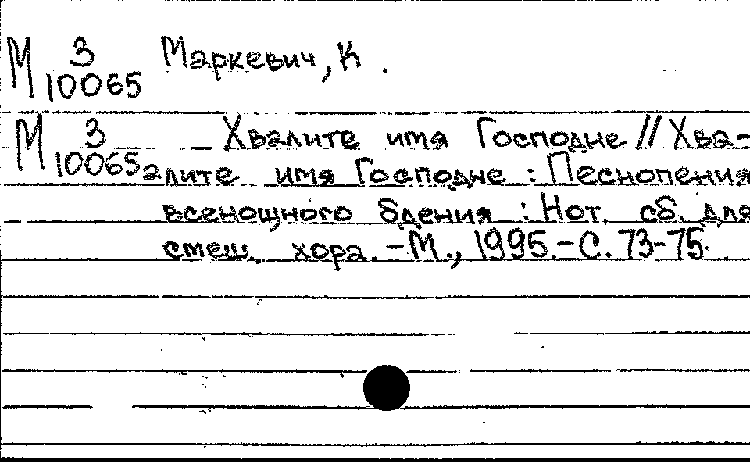 М 3
10065
Маркевич, К.
М 3
10065а
Хвалите имя Господне // Хва-
лите имя Господне : Песнопения
всенощного бдения : Нот. сб. для
смеш. хора. – М., 1995. – С. 73-75.